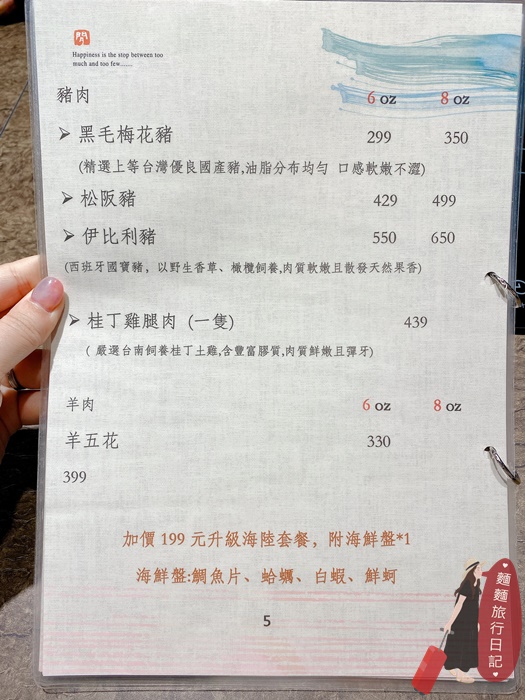 Happiness is the stop between too
much and too few......
豬肉 6 oz 8 oz
➢ 黑毛梅花豬 299 350
(精選上等台灣優良國產豬,油脂分布均勻 口感軟嫩不澀)
➢ 松阪豬 429 499
➢ 伊比利豬 550 650
(西班牙國寶豬，以野生香草、橄欖飼養,肉質軟嫩且散發天然果香)
➢ 桂丁雞腿肉 (一隻) 439
( 嚴選台南飼養桂丁土雞,含豐富膠質,肉質鮮嫩且彈牙)
羊肉 6 oz 8 oz
羊五花 330
399
加價 199 元升級海陸套餐，附海鮮盤*1
海鮮盤:鯛魚片、蛤蠣、白蝦、鮮蚵
5
麵麵旅行日記